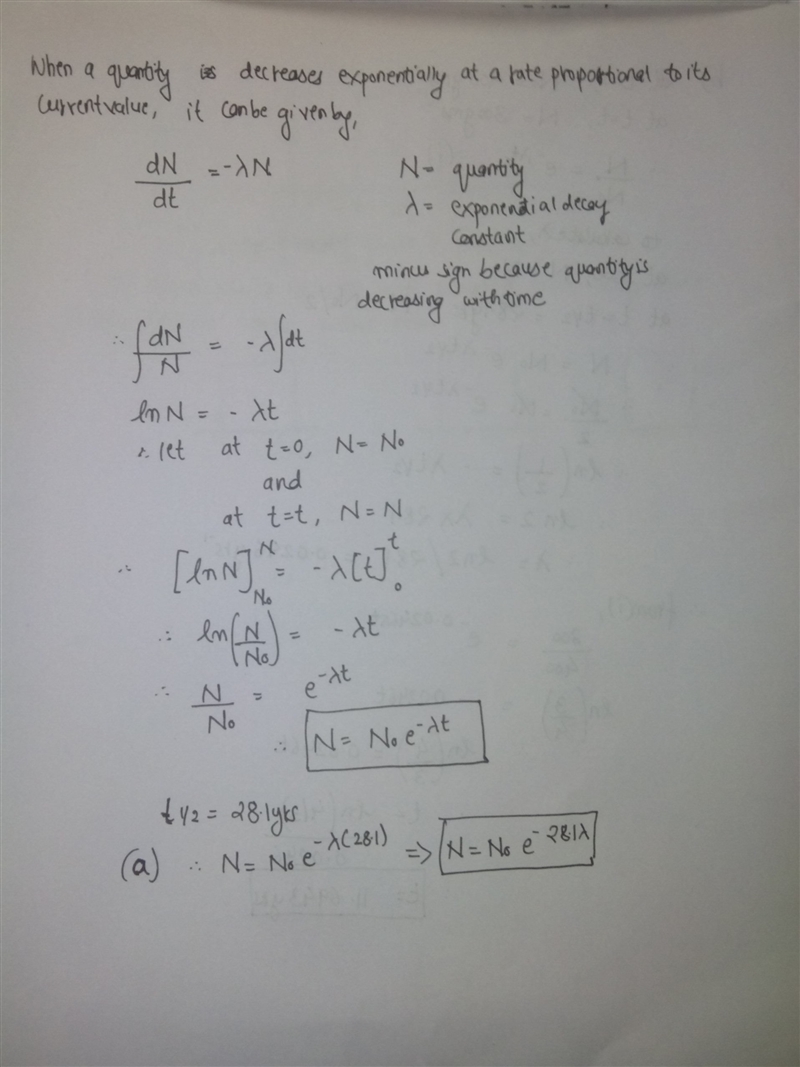 When a quantity is decreases exponentially at a rate proportional to its
current value, it can be given by,
dN/dt = -λN
N = quantity
λ = exponential decay
constant
minus sign because quantity is
decreasing with time
∴ ∫ dN/N = -λ∫dt
ln N = - λt
∴ let at t=0, N = N₀
and
at t=t, N = N
∴ [ln N]_{N₀}^{N} = -λ[t]_{0}^{t}
∴ ln(N/N₀) = -λt
∴ N/N₀ = e^{-λt}
∴ N = N₀ e^{-λt}
t_{1/2} = 28.1yrs
(a) ∴ N = N₀ e^{-λ(28.1)} => N = N₀ e^{-28.1λ}